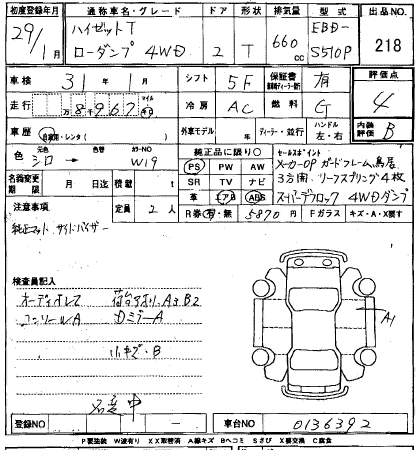 初度登録年月 通称車名・グレード ドア 形状 排気量 型式 出品NO.
29/1月 ハイゼットT ローダンプ 4WD 2 T 660cc EBD- S510P 218
車検 31年 1月 シフト 5F 保証書 有 評価点
走行 万8千967 マイル キロ 冷房 AC 燃料 G 4
車歴 自家用・レンタ( ) 外車モデル 年 ディーラー・並行 ハンドル 左・右 内装評価 B
色 元色 シロ → 色替 カラーNO W19 純正品に限り○ セールスポイント
PS PW AW メーカーOP ガードフレーム鳥居
名義変更期限 月 日迄 積載 t SR TV ナビ 3方開 リーフスプリング4枚
革 エアB ABS スーパーデフロック 4WDダンプ
注意事項 定員 2人 R券 有・無 5870円 Fガラス キズ・A・X要す
純正マット サイドバイザー
検査員記入
オーディオレス 荷台アオリA3B2
コンソールA DミラーA
小キズ・B
A1
名変中
登録NO － 車台NO 0136392
P要塗装 W波有り XX取替済 A線キズ Bヘコミ Sさび X要交換 C腐食